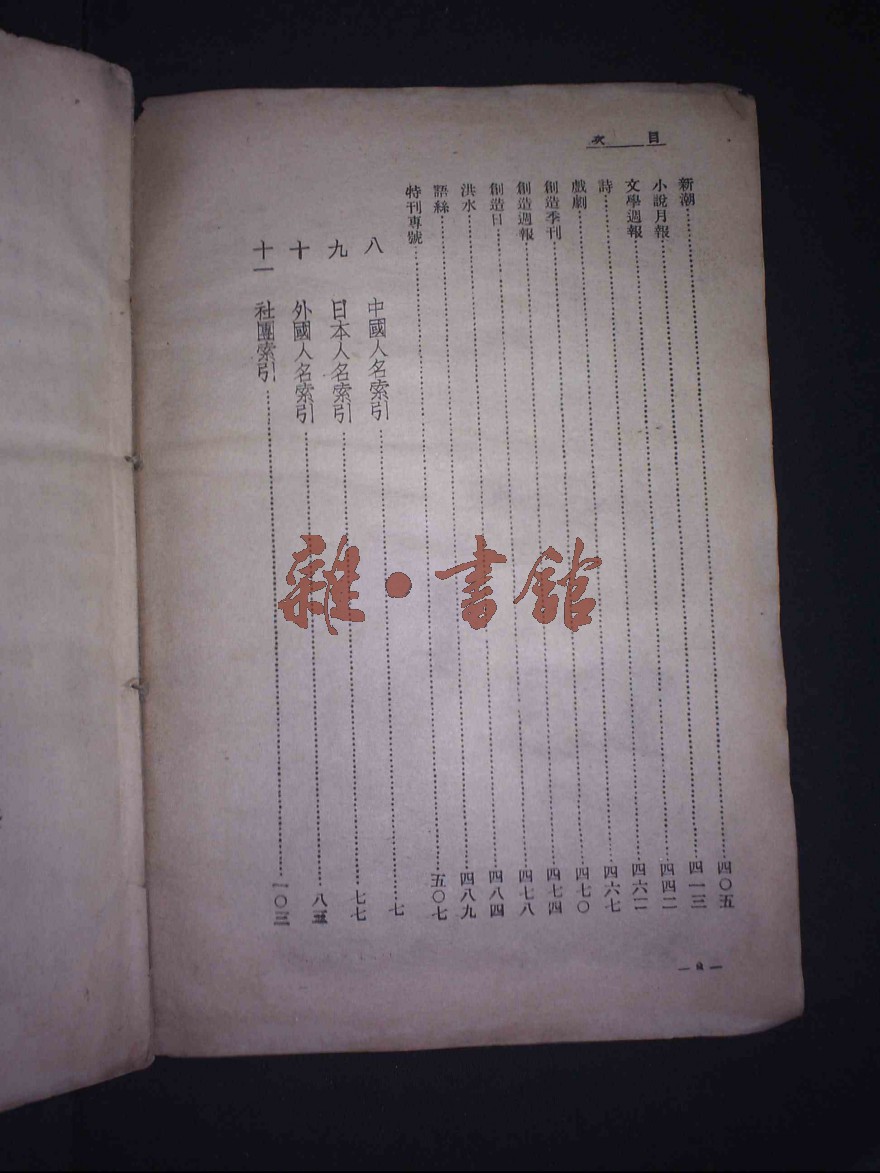 目次
新潮……四〇五
小說月報……四一三
文學週報……四四二
詩……四六二
戲劇……四六七
創造季刊……四七〇
創造週報……四七四
創造日……四七八
洪水……四八四
語絲……四八九
特刊專號……五〇七
八 中國人名索引……七
九 日本人名索引……七七
十 外國人名索引……八
十一 社團索引……一〇三
雜·書館